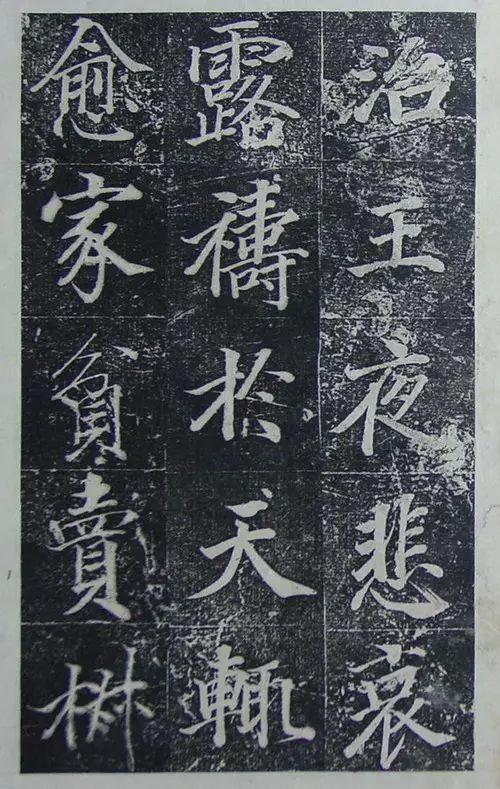 治王夜悲哀
露禱於天輒
愈家貧賣